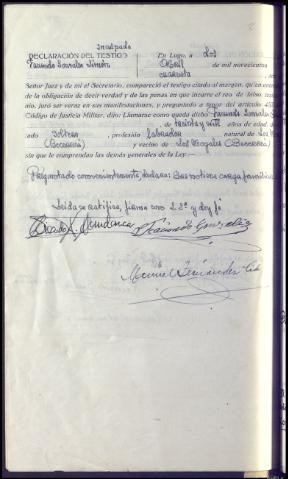 inculpado
DECLARACIÓN DEL TESTIGO
En Lugo, a dos
Facundo Gonzalez
Abril de mil novecientos
cuarenta
Señor Juez y de mi el Secretario, compareció el testigo citado al margen, que en
de la obligación de decir verdad y de las penas en que incurre el reo de falso
juró ser veraz en sus manifestaciones, y preguntado a tenor del artículo 453
Código de Justicia Militar, dijo: Llamarse como queda dicho Facundo Gonzalez
de treinta y siete años de edad
ado soltero, profesión labrador natural de Los
(Becerreá) y vecino de Los Nogales (Becerreá)
sin que le comprendan las demás generales de la Ley
Preguntado convenientemente, declara:
Leida se ratifica, firma con S.Sª doy fé
Facundo Gonzalez
Manuel Fernández